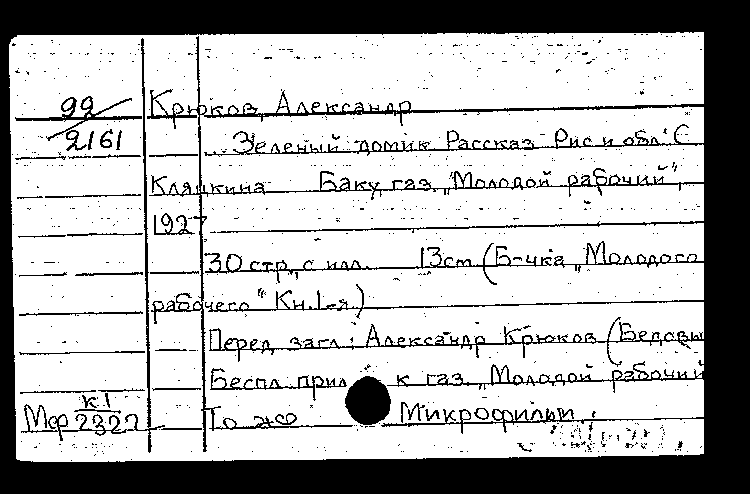 92 Крюков, Александр
2161 Зеленый домик Рассказ Рис и обл. С
Кляцкина Баку, газ. „Молодой рабочий",
1927
30 стр., с илл. 13см (Б-чка „Молодого
рабочего" Кн. 1-я)
Перед загл.: Александр Крюков (Бедовы
Беспл. прил. к газ. „Молодой рабочий
Мфр К1/2322 То же Микрофильм.